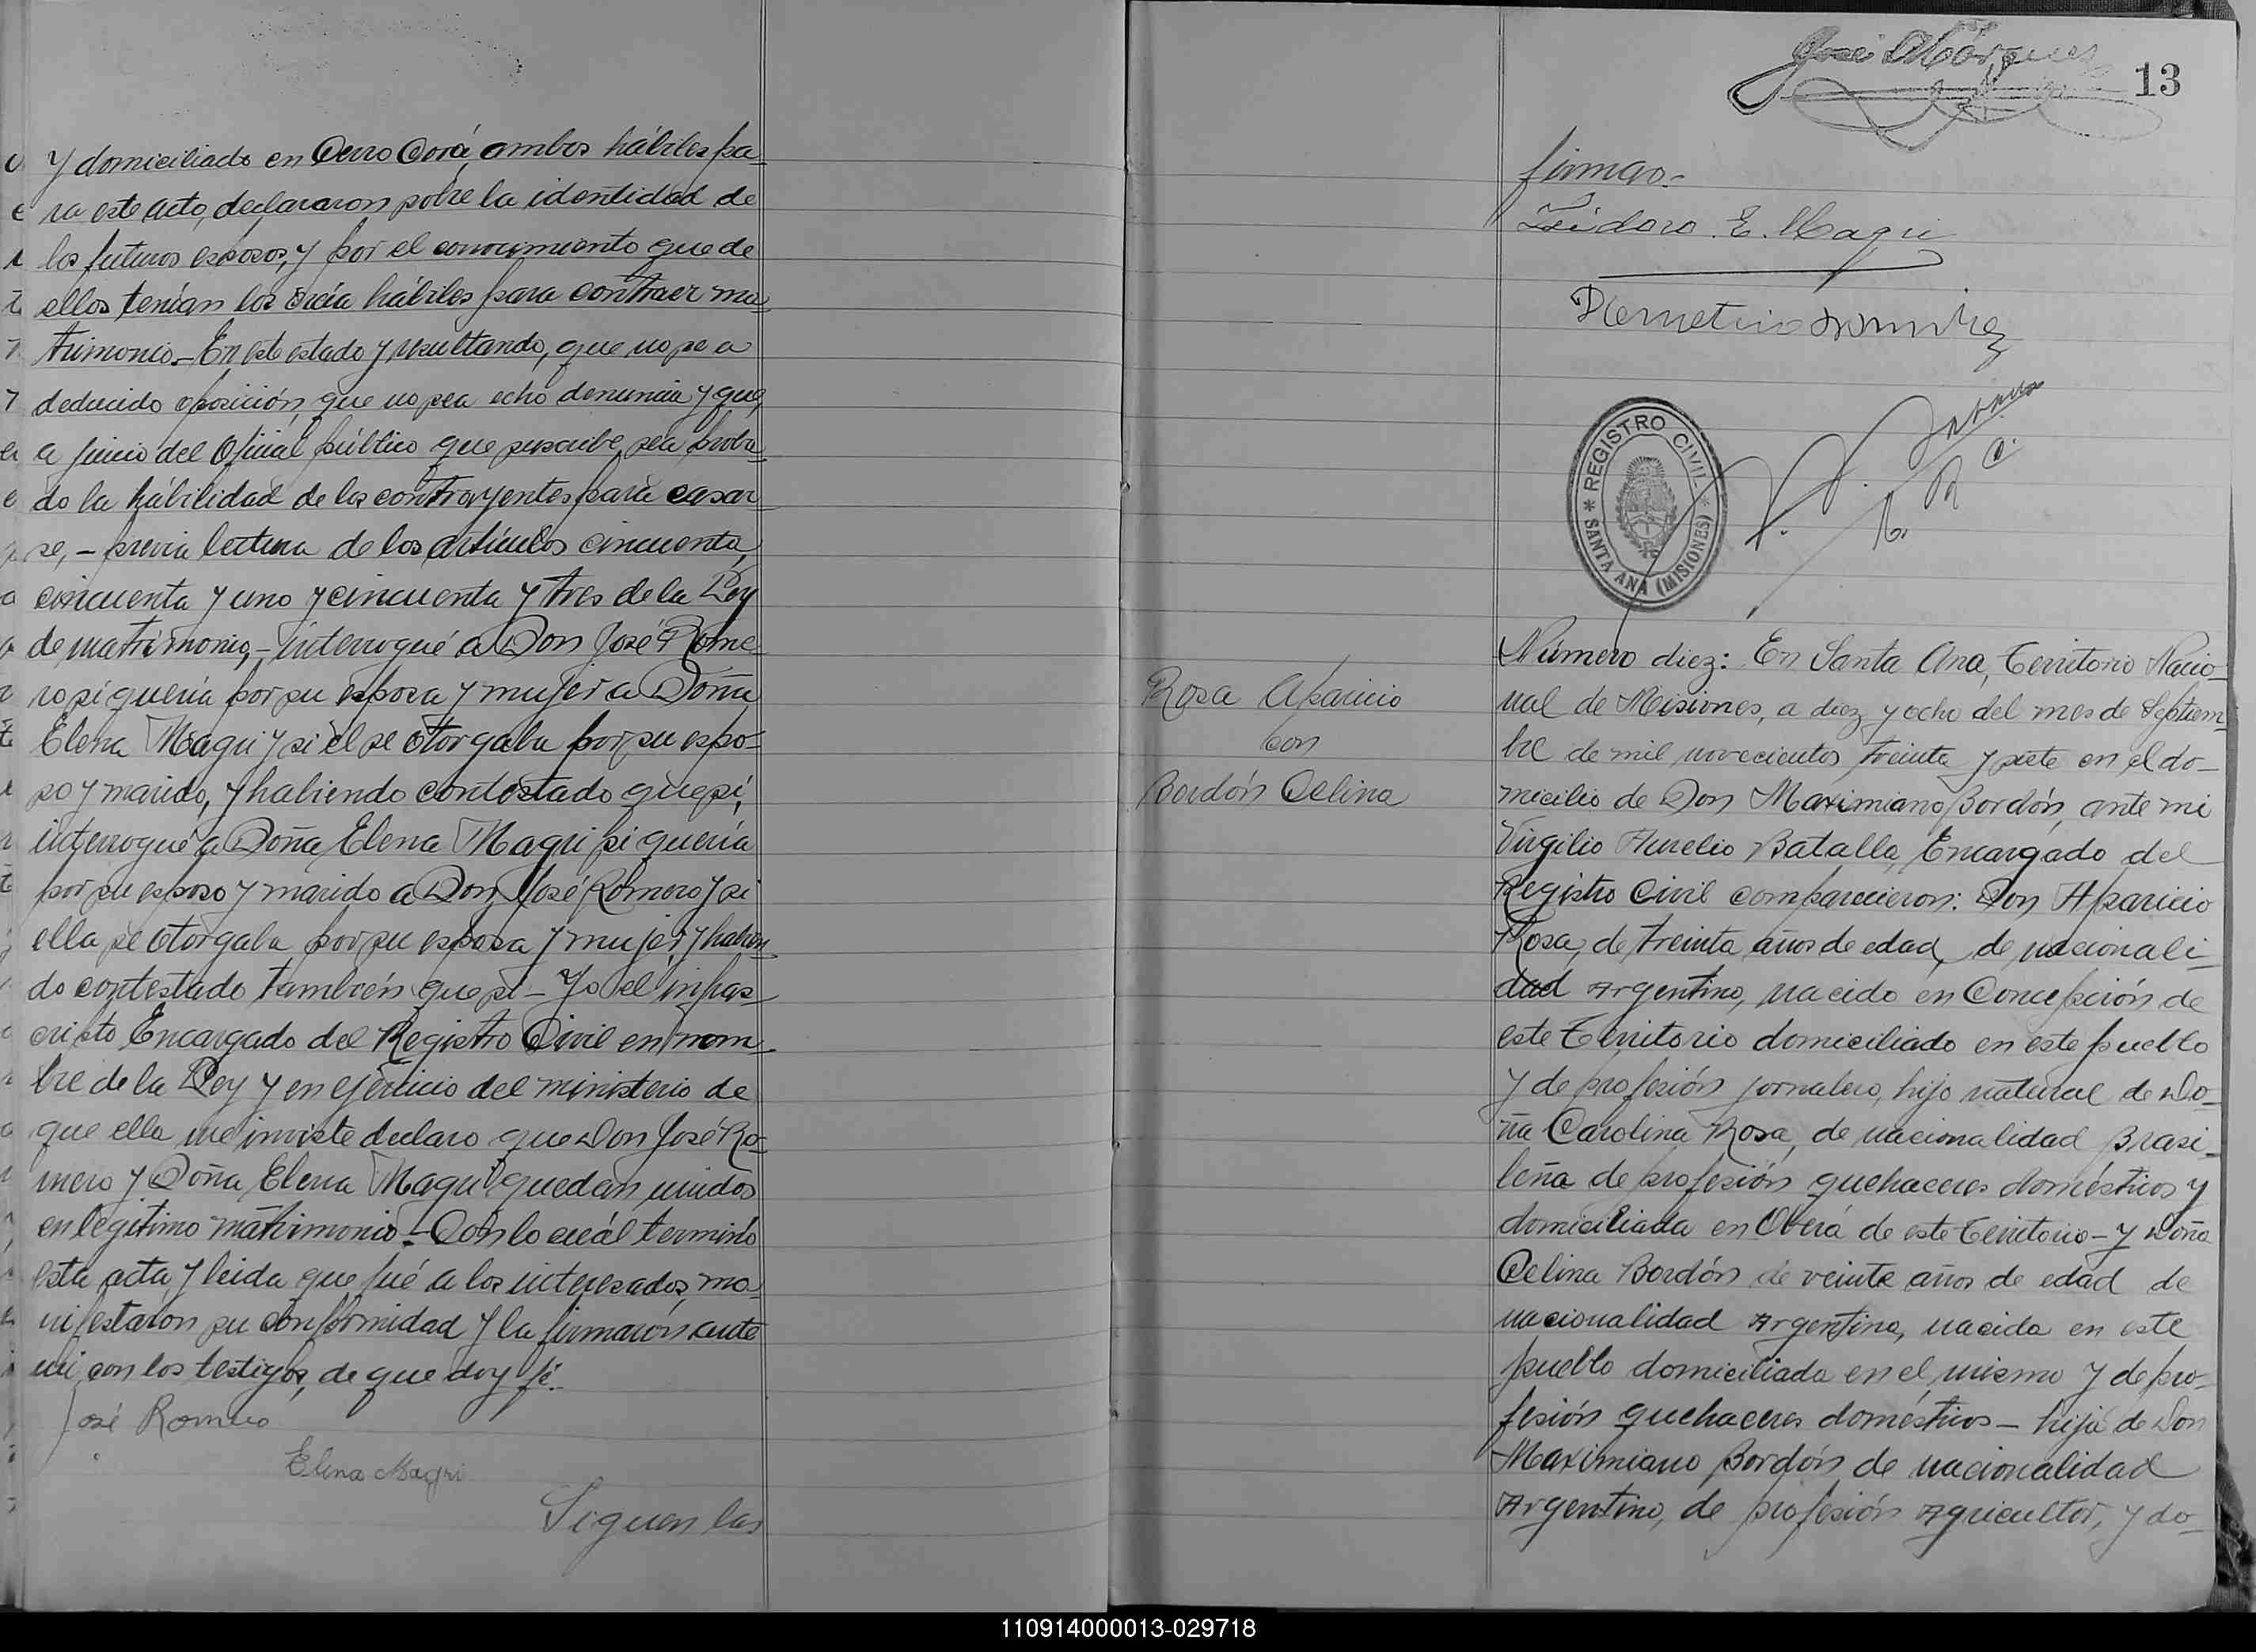 y domiciliado en Cerro Corá, ambos hábiles pa-
ra este acto, declararon sobre la identidad de
los futuros esposos, y por el conocimiento que de
ellos tenían los creía hábiles para contraer ma-
trimonio.- En este estado y resultando, que no se a
deducido oposición, que no sea echo denuncia y que,
a juicio del Oficial público que suscribe, sea proba-
do la hábilidad de los contrayentes para casar-
se, - previa lectura de los artículos cincuenta,
cincuenta y uno y cincuenta y tres de la Ley
de matrimonio, - interrogué a Don José Rome-
ro si quería por su esposa y mujer a Doña
Elena Magri y si él se otorgaba por su espo-
so y marido, y habiendo contestado que sí,
interrogué a Doña Elena Magri si quería
por su esposo y marido a Don José Romero y si
ella se otorgaba por su esposa y mujer, y habien-
do contestado también que sí - Yo el infras-
cripto Encargado del Registro Civil en nom-
bre de la Ley y en ejercicio del ministerio de
que ella me inviste declaro que Don José Ro-
mero y Doña Elena Magri quedan unidos
en legítimo matrimonio.- Con lo cuál terminó
esta acta, y leida que fué a los interesados, ma-
nifestaron su conformidad y la firmaron ante
mi, con los testigos, de que doy fé.-
José Romero
Elena Magri
Siguen las
José Márquez
13
firmas.-
Isidoro E. Magri
Demetrio Ramirez
* REGISTRO CIVIL *
SANTA ANA (MISIONES)
E. R. C.
Rosa Aparicio
con
Bordón Celina
Número diez: En Santa Ana, Territorio Nacio-
nal de Misiones, a diez y ocho del mes de Septiem-
bre de mil novecientos treinta y siete en el do-
micilio de Don Maximiano Bordón, ante mi
Virgilio Aurelio Batalla, Encargado del
Registro Civil comparecieron: Don Aparicio
Rosa, de treinta años de edad, de nacionali-
dad Argentino, nacido en Concepción de
este Territorio domiciliado en este pueblo
y de profesión jornalero, hijo natural de Do-
ña Carolina Rosa, de nacionalidad Brasi-
leña de profesión quehaceres domésticos y
domiciliada en Oberá de este Territorio - y Doña
Celina Bordón de veinte años de edad de
nacionalidad Argentina, nacida en este
pueblo domiciliada en el mismo y de pro-
fesión quehaceres domésticos - hija de Don
Maximiano Bordón, de nacionalidad
Argentino, de profesión Agricultor, y do-
110914000013-029718